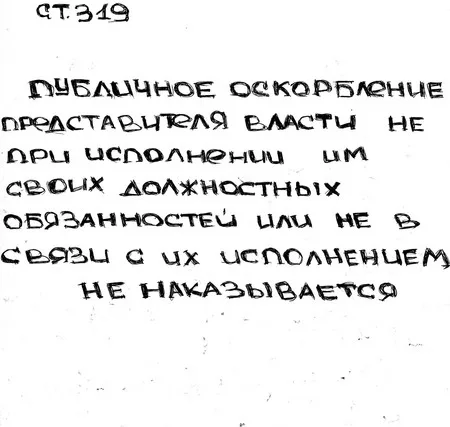 СТ.319
ПУБЛИЧНОЕ ОСКОРБЛЕНИЕ
ПРЕДСТАВИТЕЛЯ ВЛАСТИ НЕ
ПРИ ИСПОЛНЕНИИ ИМ
СВОИХ ДОЛЖНОСТНЫХ
ОБЯЗАННОСТЕЙ ИЛИ НЕ В
СВЯЗИ С ИХ ИСПОЛНЕНИЕМ,
НЕ НАКАЗЫВАЕТСЯ